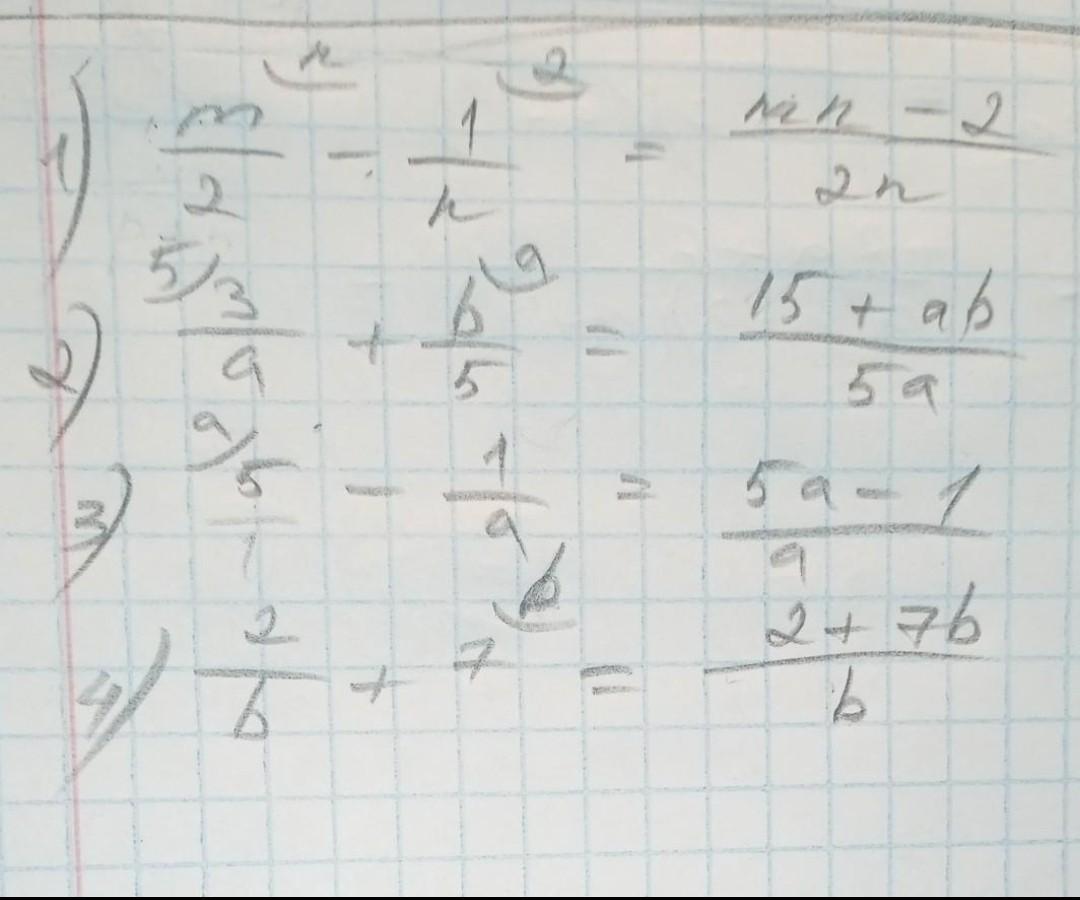 1) m/2 ⁿ - 1/n ² = mn - 2 / 2n
2) ⁵⁾ 3/a + b/5 ᵃ = 15 + ab / 5a
3) ᵃ⁾ 5/1 - 1/a = 5a - 1 / a
4) 2/b + 7 ᵇ = 2 + 7b / b